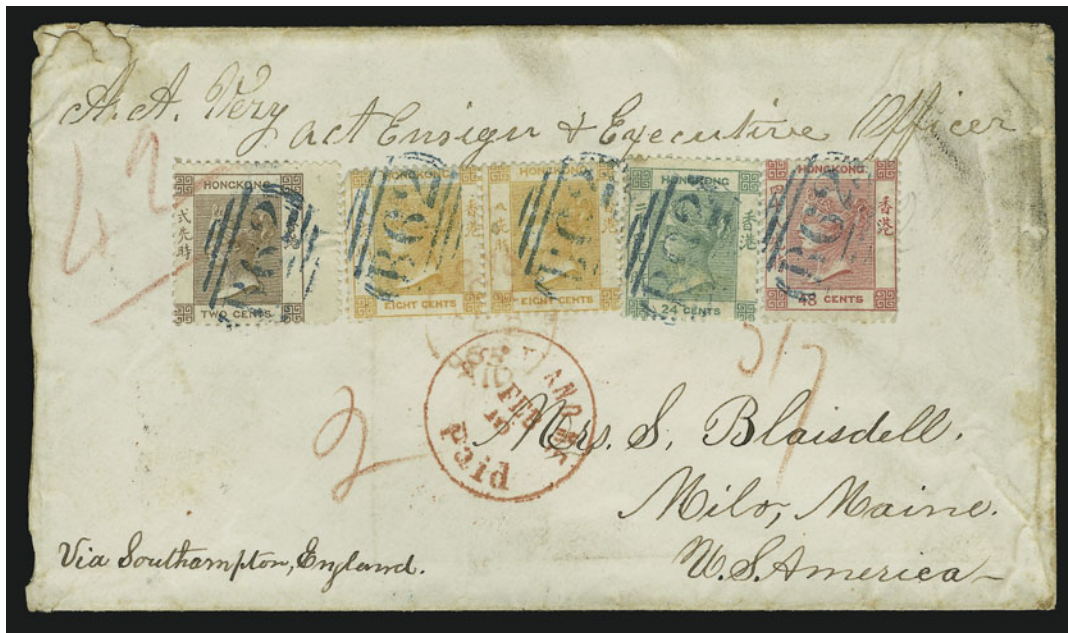 A. A. Very
Act Ensign & Executive Officer
42
HONGKONG
弍先時
TWO CENTS
B62
HONGKONG
EIGHT CENTS
B62
HONGKONG
EIGHT CENTS
B62
HONGKONG
香港
24 CENTS
B62
HONGKONG
香港
48 CENTS
B62
FEB
Paid
2
Mrs. S. Blaisdell.
Milo, Maine.
U.S. America
Via Southampton, England.